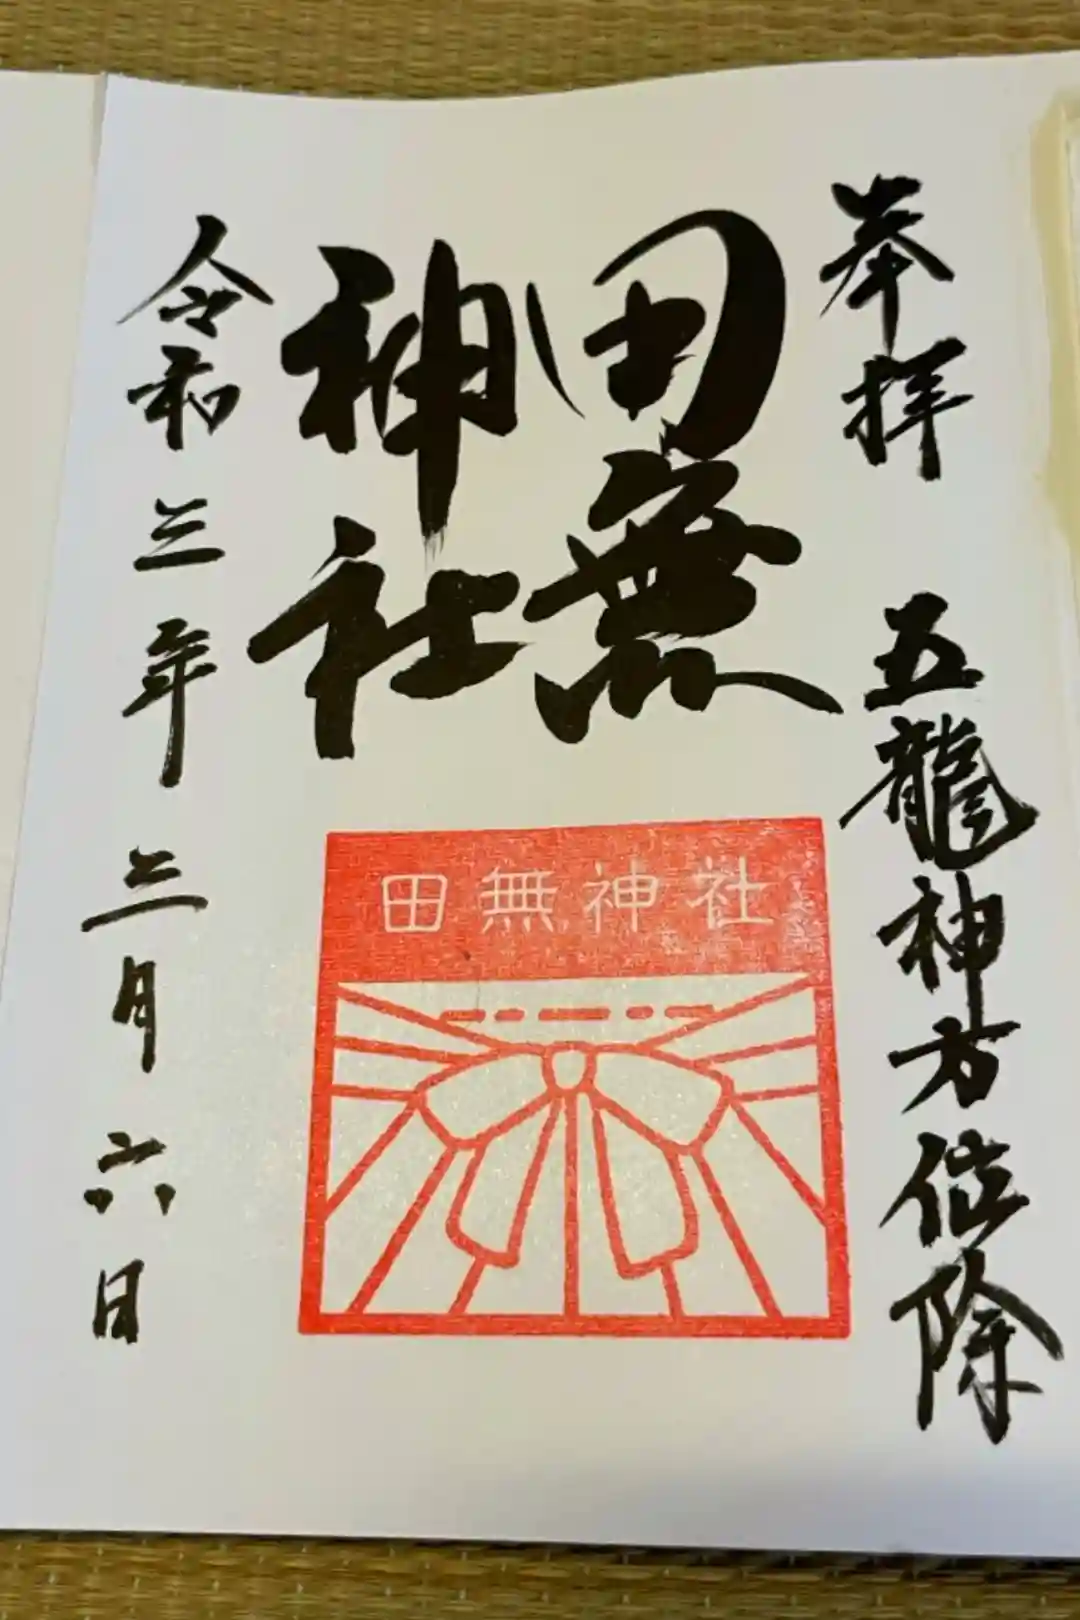 奉拝 五龍神方位除
田無
神社
令和三年三月六日
田無神社